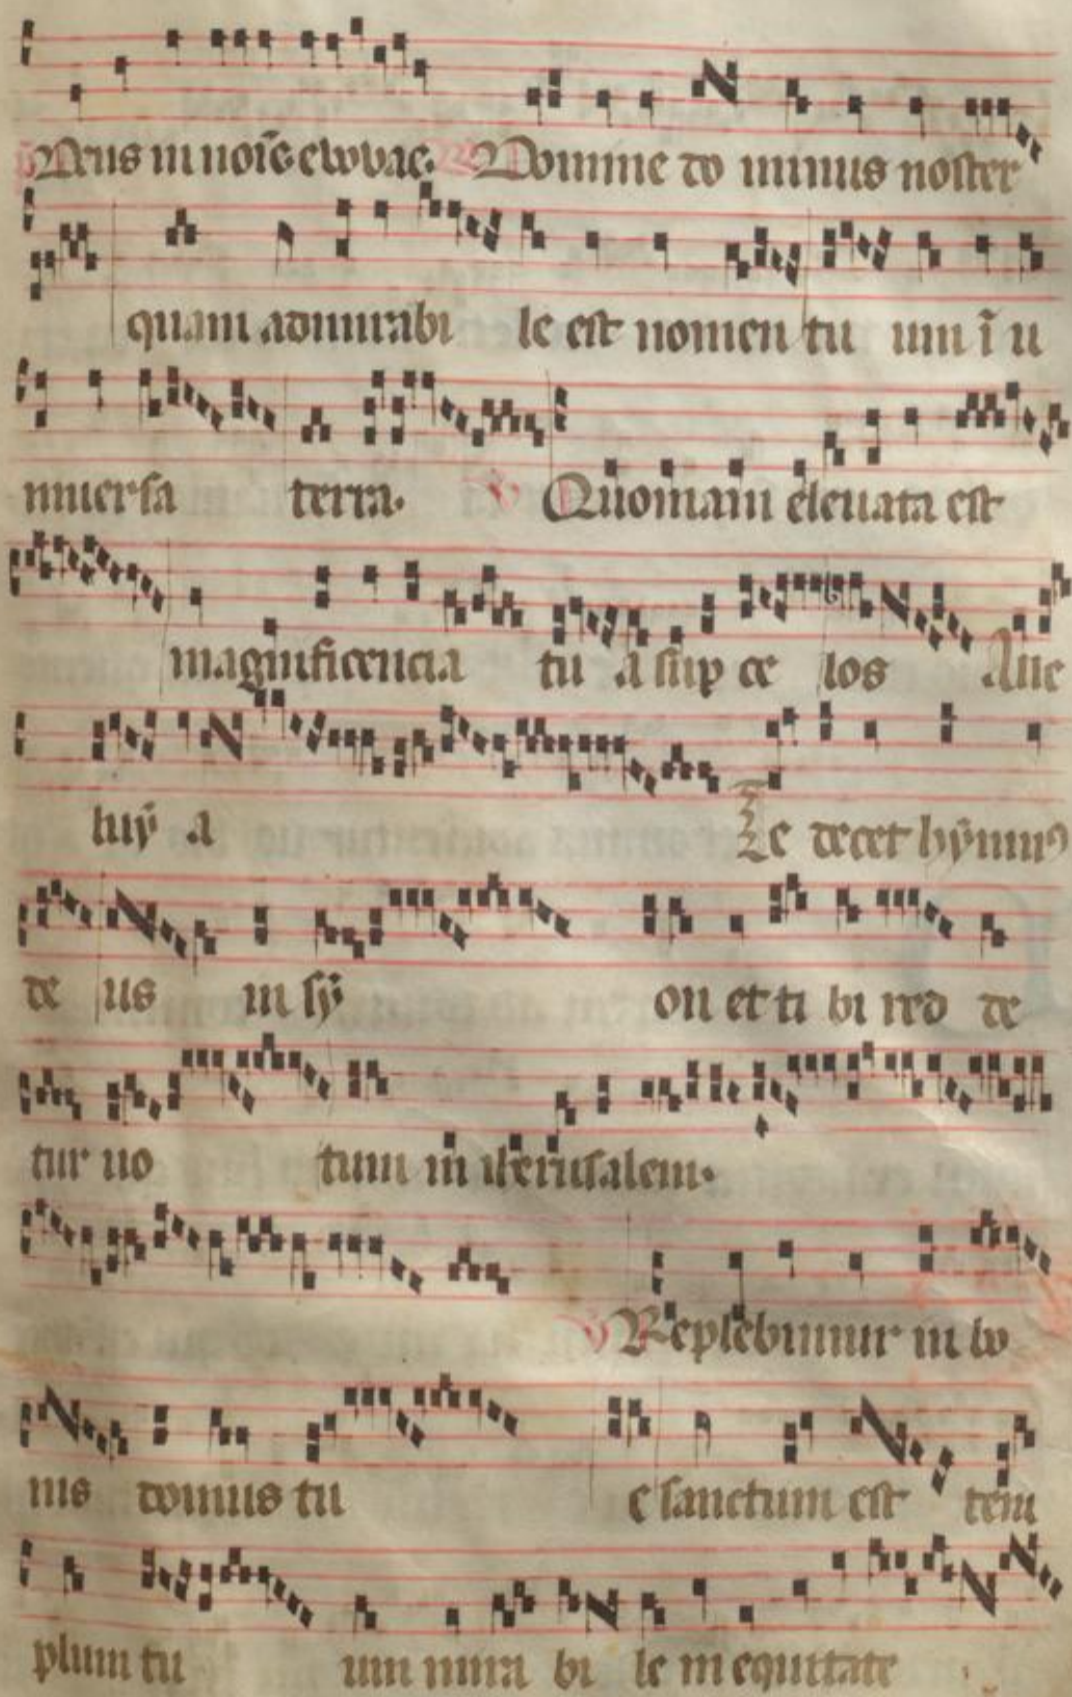 Deus in noīe. euouae. Domine do minus noster
quam admirabi le est nomen tu um ī u
niuersa terra. V Quoniam eleuata est
magnificencia tu a sup ce los Alle
luÿ a Te decet hÿmnꝰ
de us in sÿ on et ti bi red de
tur uo tum in iherusalem.
V Replebimur in bo
nis domus tu e sanctum est tem
plum tu um mira bi le in equitate